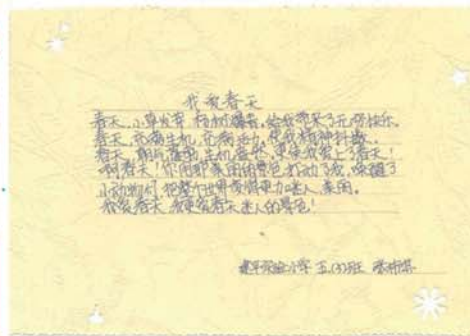 我爱春天
春天,小草发芽,杨柳,给我带来了无穷快乐。
春天,充满生机,充满活力,使我精神抖擞。
春天,朝气蓬勃,生机盎然,更使我爱上了春天!
啊春天!你用那美丽的景色打动了我,唤醒了
小动物们,把整个世界更加迷人、美丽。
我爱春天,我更爱春天迷人的景色!
建平实验小学 五(3)班